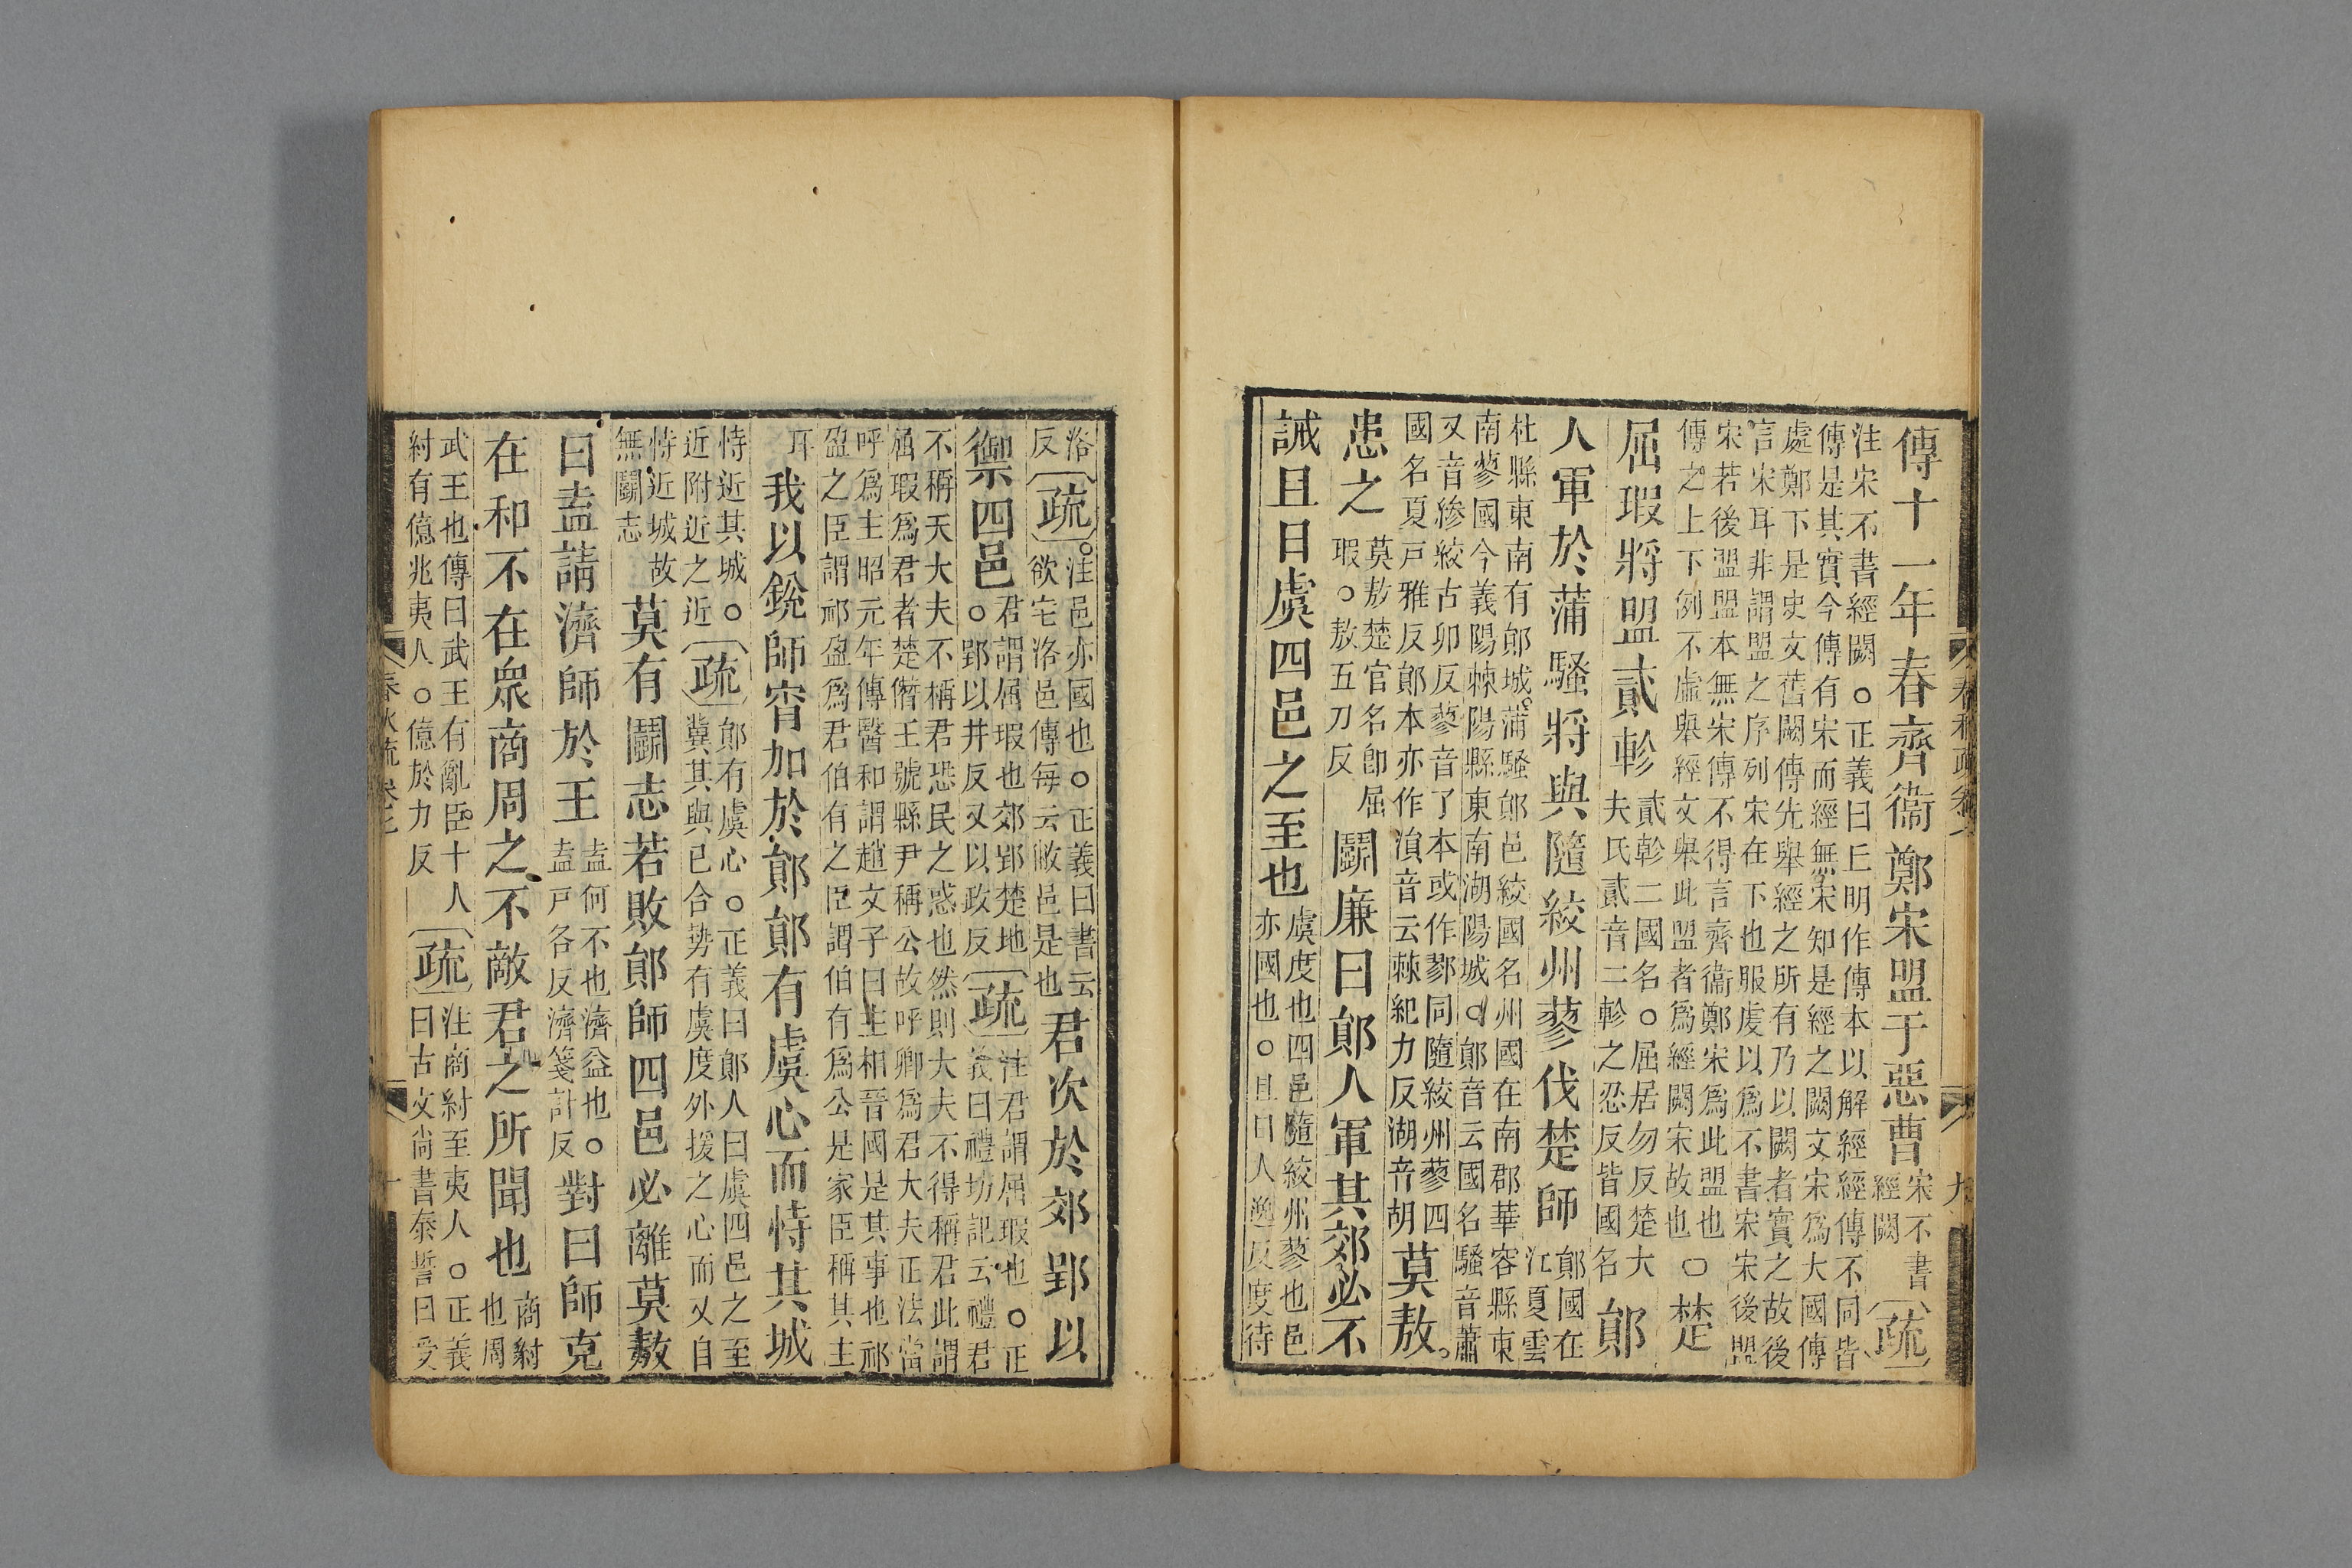 春秋疏卷七 九
傳十一年春齊衞鄭宋盟于惡曹宋不書
經闕〔疏〕
注宋不書經闕○正義曰丘明作傳本以解經經傳不同皆
傳是其實今傳有宋而經無宋知是經之闕文宋爲大國傳
處鄭下是史文舊闕傳先舉經之所有乃以闕者實之故後
言宋耳非謂盟之序列宋在下也服虔以爲不書宋宋後盟
宋若後盟盟本無宋傳不得言齊衞鄭宋爲此盟也
傳之上下例不虛舉經文舉此盟者爲經闕宋故也○楚
屈瑕將盟貳軫貳軫二國名○屈居勿反楚大
夫氏貳音二軫之忍反皆國名鄖
人軍於蒲騷將與隨絞州蓼伐楚師鄖國在
江夏雲
杜縣東南有鄖城蒲騷鄖邑絞國名州國在南郡華容縣東
南蓼國今義陽棘陽縣東南湖陽城○鄖音云國名騷音蕭
又音縿絞古卯反蓼音了本或作鄝同隨絞州蓼四
國名夏戸雅反鄖本亦作溳音云棘紀力反湖音胡莫敖
患之莫敖楚官名卽屈
瑕○敖五刀反鬭廉曰鄖人軍其郊必不
誡且日虞四邑之至也虞度也四邑隨絞州蓼也邑
亦國也○且日人逸反度待
洛
反〔疏〕注邑亦國也○正義曰書云
欲宅洛邑傳每云敝邑是也君次於郊郢以
禦四邑君謂屈瑕也郊郢楚地
○郢以井反又以政反〔疏〕注君謂屈瑕也○正
義曰禮坊記云禮君
不稱天大夫不稱君恐民之惑也然則大夫不得稱君此謂
屈瑕爲君者楚僭王號縣尹稱公故呼卿爲君大夫正法當
呼爲主昭元年傳醫和謂趙文子曰主相晉國是其事也祁
盈之臣謂祁盈爲君伯有之臣謂伯有爲公是家臣稱其主
耳我以銳師宵加於鄖鄖有虞心而恃其城
恃近其城○
近附近之近〔疏〕鄖有虞心○正義曰鄖人曰虞四邑之至
冀其與已合勢有虞度外援之心而又自
恃近城故
無鬭志莫有鬭志若敗鄖師四邑必離莫敖
曰盍請濟師於王盍何不也濟益也○
盍戸各反濟箋計反對曰師克
在和不在衆商周之不敵君之所聞也商紂
也周
武王也傳曰武王有亂臣十人
紂有億兆夷人○億於力反〔疏〕注商紂至夷人○正義
曰古文尙書泰誓曰受
春秋疏卷七